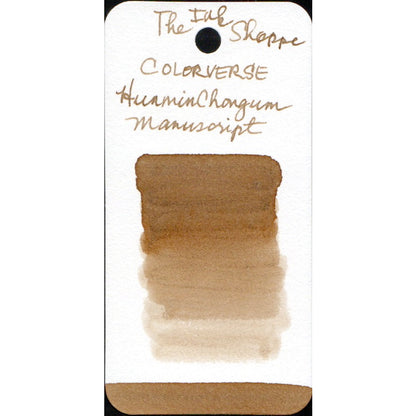 The Ink Shoppe
COLORVERSE
HunminChongum
Manuscript